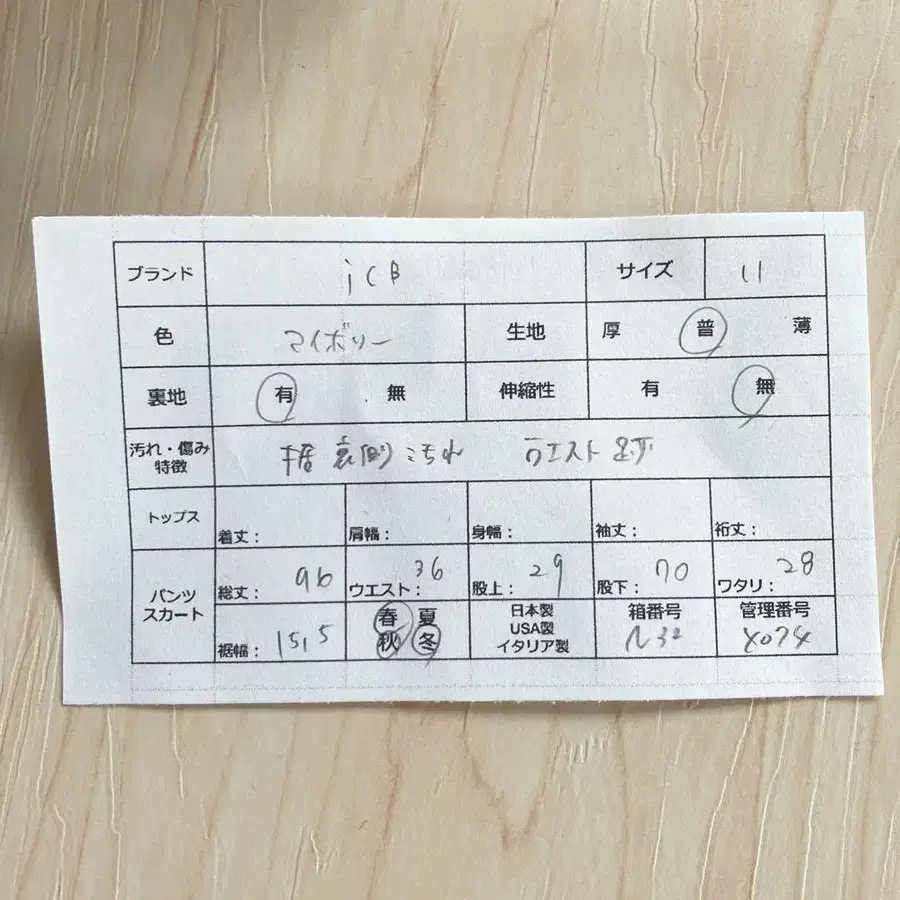 ブランド iCB サイズ 11
色 アイボリー 生地 厚 普 薄
裏地 有 無 伸縮性 有 無
汚れ・傷み
特徴
裾裏側汚れ ウエスト
トップス 着丈: 肩幅: 身幅: 袖丈: 裄丈:
パンツ
スカート
総丈: 96 ウエスト: 36 股上: 29 股下: 70 ワタリ: 28
裾幅: 15,5
春 夏
秋 冬
日本製
USA製
イタリア製
箱番号
N32
管理番号